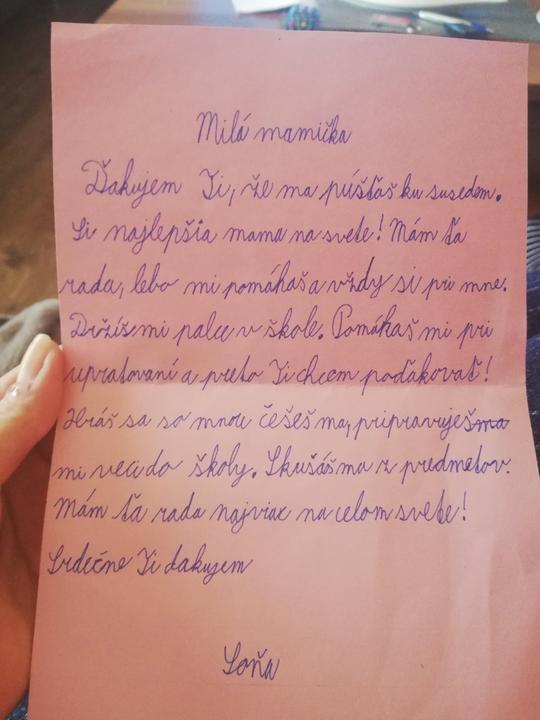 Milá mamička
Ďakujem Ti, že ma púšťaš ku susedom.
Si najlepšia mama na svete! Mám ťa
rada, lebo mi pomáhaš a vždy si pri mne.
Držíš mi palce v škole. Pomáhaš mi pri
upratovaní a preto Ti chcem poďakovať!
Hráš sa so mnou češeš ma, pripravuješ ma
mi veci do školy. Skúšaš ma z predmetov.
Mám ťa rada najviac na celom svete!
Srdečne Ti dakujem
Soňa